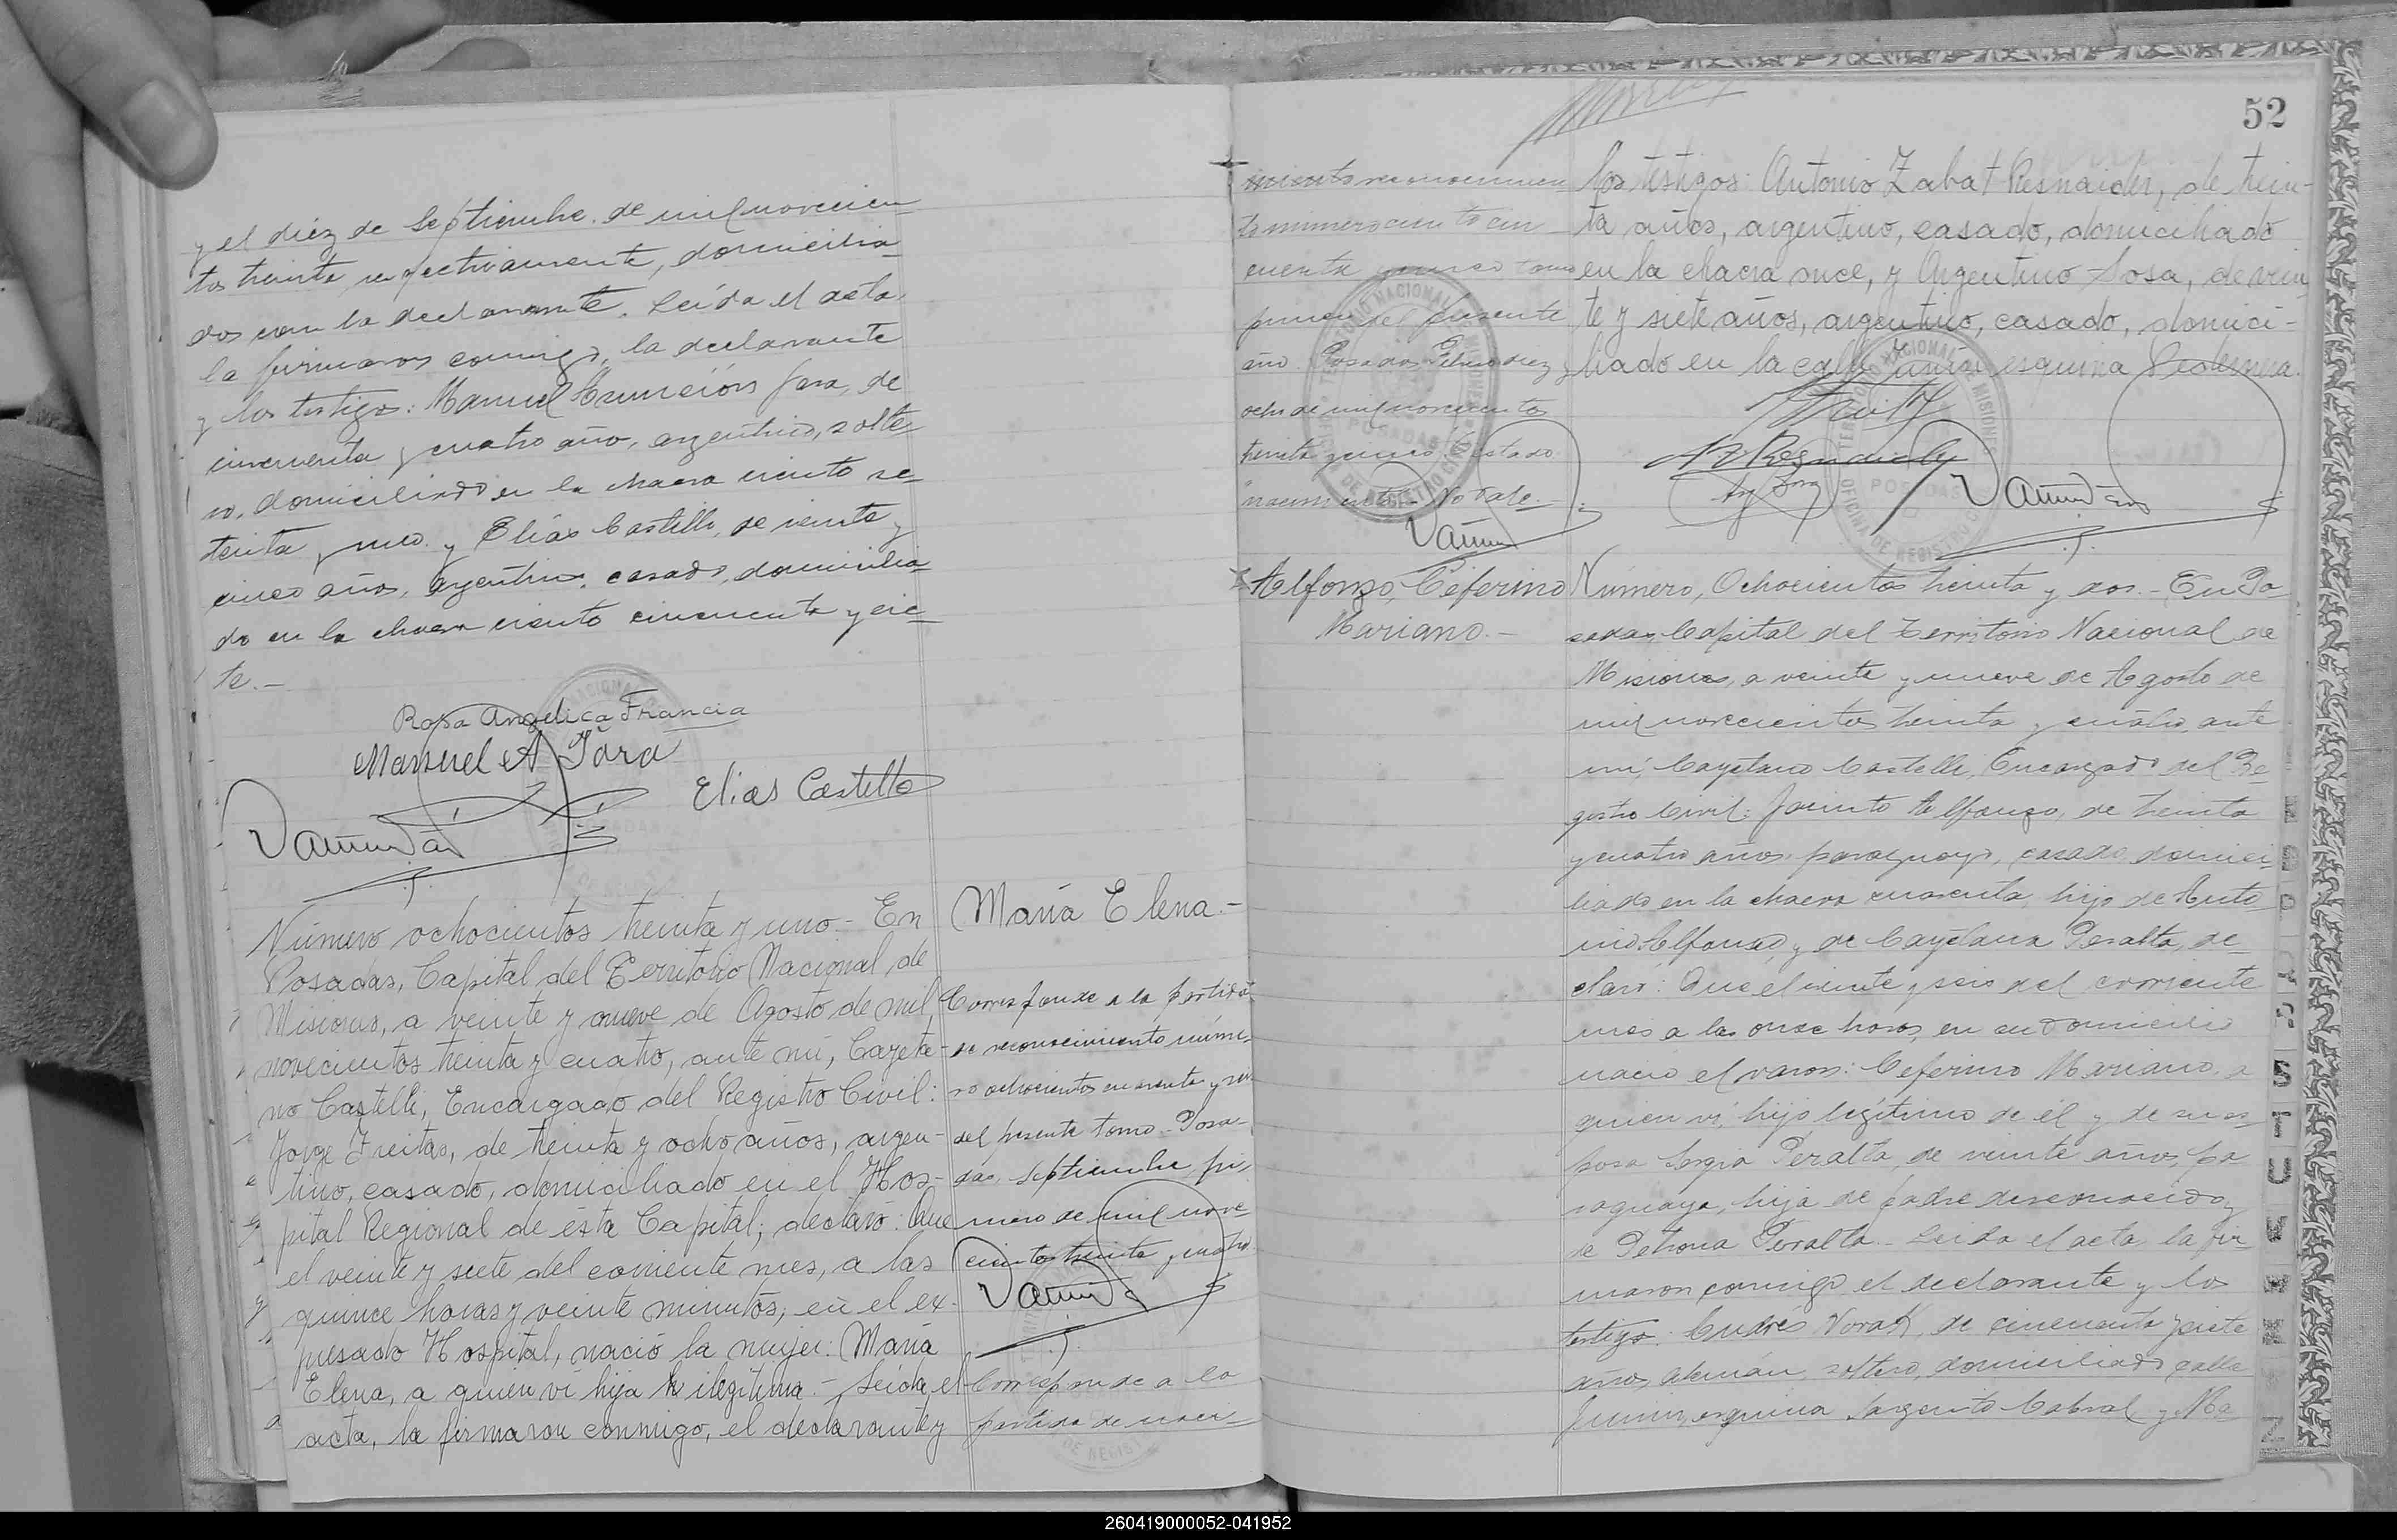 y el diez de Septiembre de mil novecien-
tos treinta, respectivamente, domicilia-
dos con la declarante. Leída el acta,
la firmaron conmigo, la declarante
y los testigos: Manuel Asunción Jara, de
cincuenta y cuatro años, argentino, solte-
ro, domiciliado en la chacra ciento se-
tenta y nueve y Elías Castillo, de veinte y
cinco años, argentino, casado, domicilia-
do en la chacra ciento cincuenta y sie-
te.-
Rosa Angélica Francia
Manuel A Jara
Elias Castillo
Número ochocientos treinta y uno - En
Posadas, Capital del Territorio Nacional, de
Misiones, a veinte y nueve de Agosto de mil
novecientos treinta y cuatro, ante mí, Cayeta-
no Castelli, Encargado del Registro Civil:
Jorge Freitas, de treinta y ocho años, argen-
tino, casado, domiciliado en el Hos-
pital Regional de ésta Capital, declaró: Que
el veinte y siete del corriente mes, a las
quince horas y veinte minutos, en el ex-
presado Hospital, nació la mujer: María
Elena, a quien ví hija ilegítima.- Leída el
acta, la firmaron conmigo, el declarante y
María Elena.-
Corresponde a la partida
de reconocimiento núme-
ro ochocientos cuarenta y
del presente tomo - Posa-
das, Septiembre pri-
mero de mil nove-
cientos treinta y cuatro
Corresponde a la
partida de naci-
52
miento reconocimien-
to número ciento cin-
cuenta y cinco tomo
primero del presente
año. Posadas, Febrero diez y
ocho de mil novecientos
treinta y cinco. Testado
"nacimiento" No vale.-
los testigos: Antonio Zabat Resnaider, de trein-
ta años, argentino, casado, domiciliado
en la chacra once, y Argentino Sosa, de vein-
te y siete años, argentino, casado, domici-
liado en la calle Junín esquina Pedernera.
TERRITORIO NACIONAL DE MISIONES
POSADAS
OFICINA DE REGISTRO CIVIL
Alfonzo, Ceferino
Mariano.-
Número, Ochocientos treinta y dos.- En Po-
sadas, Capital del Territorio Nacional de
Misiones, a veinte y nueve de Agosto de
mil novecientos treinta y cuatro, ante
mí, Cayetano Castelli, Encargado del Re-
gistro Civil: Jacinto Alfonzo, de treinta
y cuatro años, paraguayo, casado, domici-
liado en la chacra cuarenta, hijo de Anto-
nio Alfonzo, y de Cayetana Peralta, de-
claró: Que el veinte y seis del corriente
mes a las once horas, en su domicilio
nació el varón: Ceferino Mariano, a
quien ví, hijo legítimo de él y de su es-
posa Sergia Peralta, de veinte años, pa-
raguaya, hija de padre desconocido y
de Petrona Peralta.- Leída el acta, la fir-
maron conmigo el declarante y los
testigos: Andrés Novak, de cincuenta y siete
años, alemán, soltero, domiciliado calle
Junín, esquina Sargento Cabral y Ma-
260419000052-041952